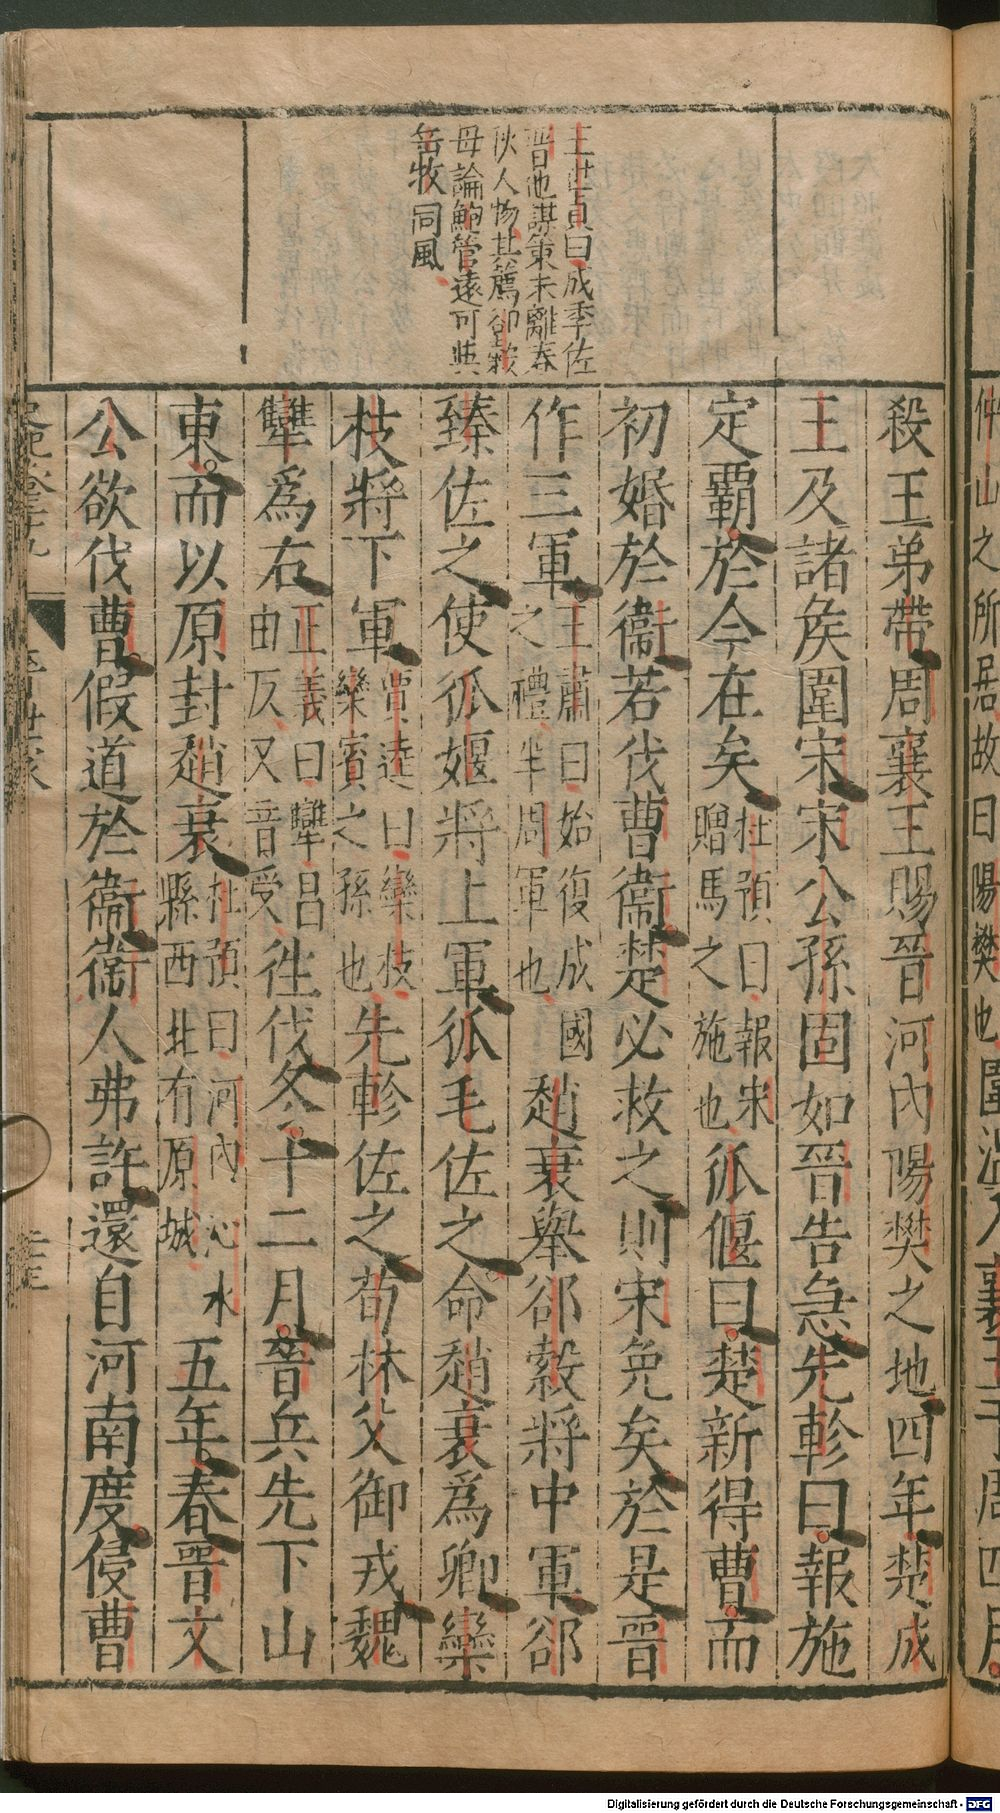 仲山之所居故曰陽樊也圍溫入襄王于周四月
王世貞曰成季佐
晉他謀策未離春
伙人物其薦郤縠
毋論鮑管遠可與
缶牧同風
殺王弟帶周襄王賜晉河內陽樊之地四年楚成
王及諸矦圍宋宋公孫固如晉告急先軫曰報施
定霸於今在矣杜預曰報宋贈馬之施也狐偃曰楚新得曹而
初婚於衞若伐曹衞楚必救之則宋免矣於是晉
作三軍王肅曰始復成國之禮半周軍也趙衰舉郤縠將中軍郤
臻佐之使狐偃將上軍狐毛佐之命趙衰爲卿欒
枝將下軍賈逵曰欒枝欒賓之孫也先軫佐之荀林父御戎魏
犫爲右正義曰犫昌由反又音受往伐冬十二月晉兵先下山
東而以原封趙衰杜預曰河內沁水縣西北有原城五年春晉文
公欲伐曹假道於衞衞人弗許還自河南度侵曹
晉世家
Digitalisierung gefördert durch die Deutsche Forschungsgemeinschaft - DFG